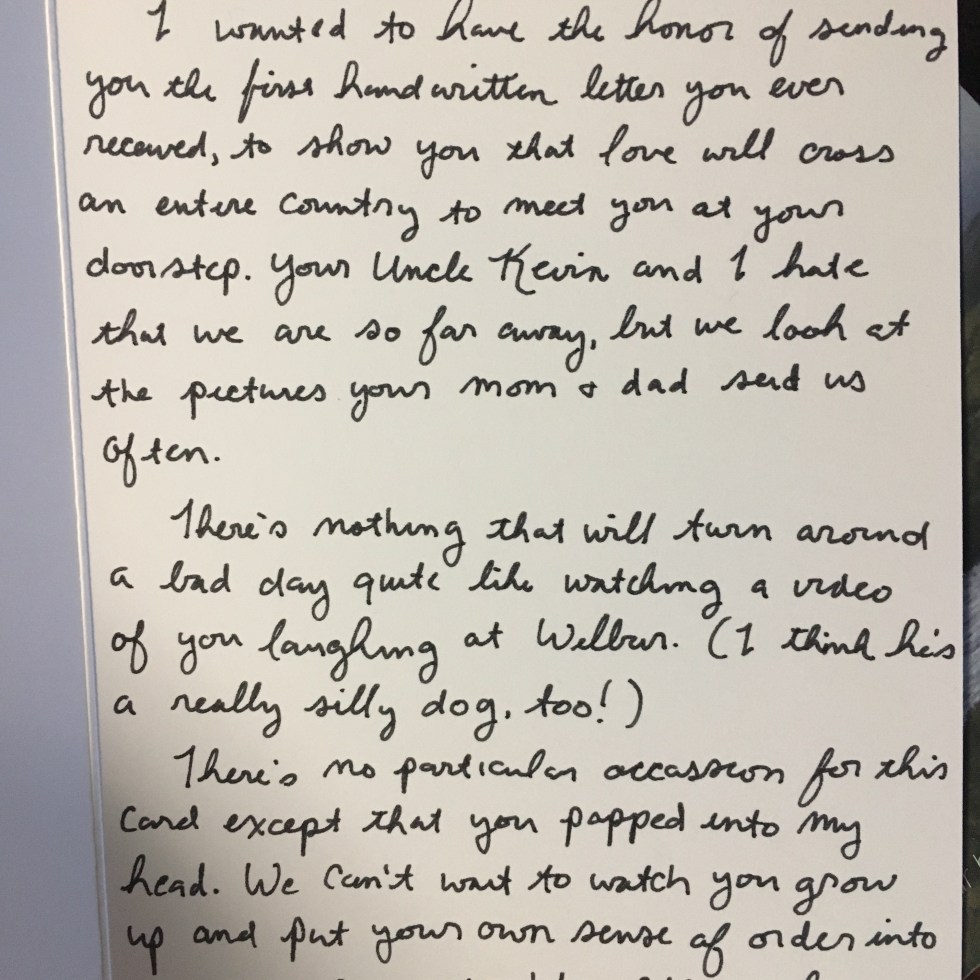 I wanted to have the honor of sending
you the first handwritten letter you ever
received, to show you that love will cross
an entire country to meet you at your
doorstep. Your Uncle Kevin and I hate
that we are so far away, but we look at
the pictures your mom & dad send us
often.
There's nothing that will turn around
a bad day quite like watching a video
of you laughing at Wilbur. (I think he's
a really silly dog, too!)
There's no particular occassion for this
card except that you popped into my
head. We can't wait to watch you grow
up and put your own sense of order into